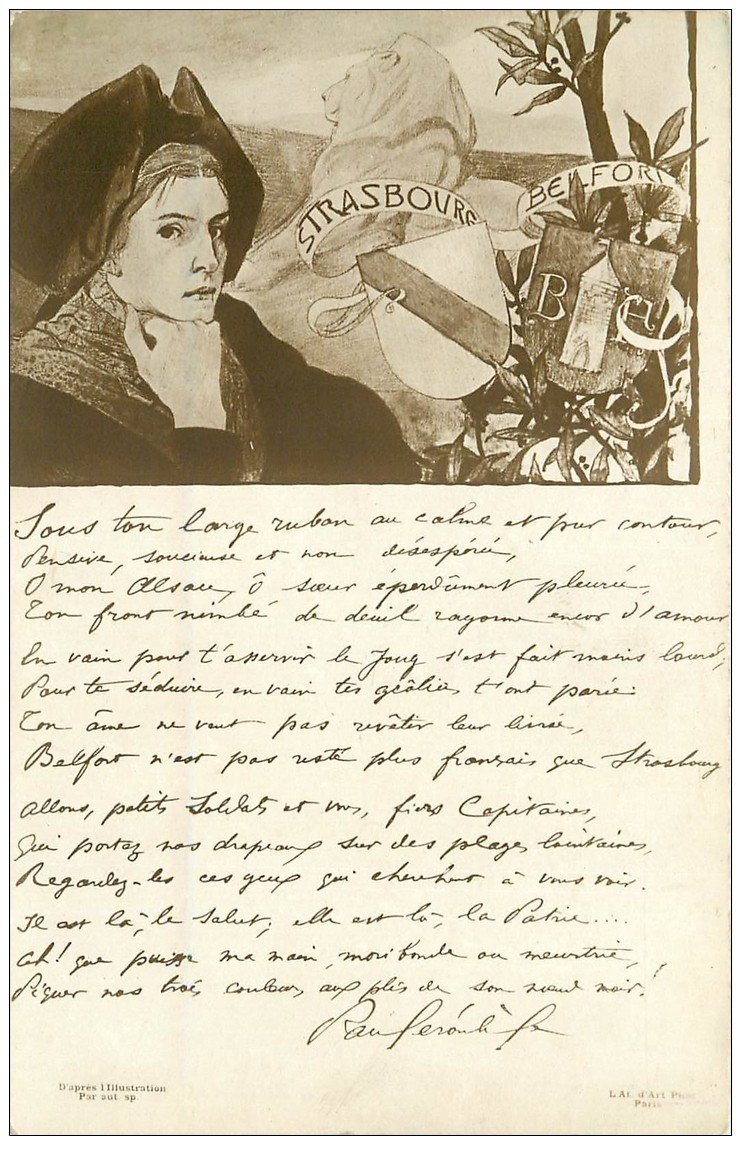 STRASBOURG
BELFORT
B F
Sous ton large ruban au calme et pur contour,
Pensive, soucieuse et non désespérée,
O mon Alsace, ô sœur éperdûment pleurée,
Ton front nimbé de deuil rayonne encor d'amour
En vain pour t'asservir le Joug s'est fait moins lourd,
Pour te séduire, en vain tes geôliers t'ont parée:
Ton âme ne veut pas revêtir leur livrée,
Belfort n'est pas resté plus français que Strasbourg
Allons, petits Soldats et vous, fiers Capitaines,
Qui portez nos drapeaux sur des plages lointaines,
Regardez-les ces yeux qui cherchent à vous voir.
Il est là, le Salut; elle est là, la Patrie....
Ah! que puisse ma main, moribonde ou meurtrie,
Piquer nos trois couleurs aux plis de son nœud noir!
Paul Déroulède
D'après l'Illustration
Par aut sp.
L At. d'Art Phot
Paris